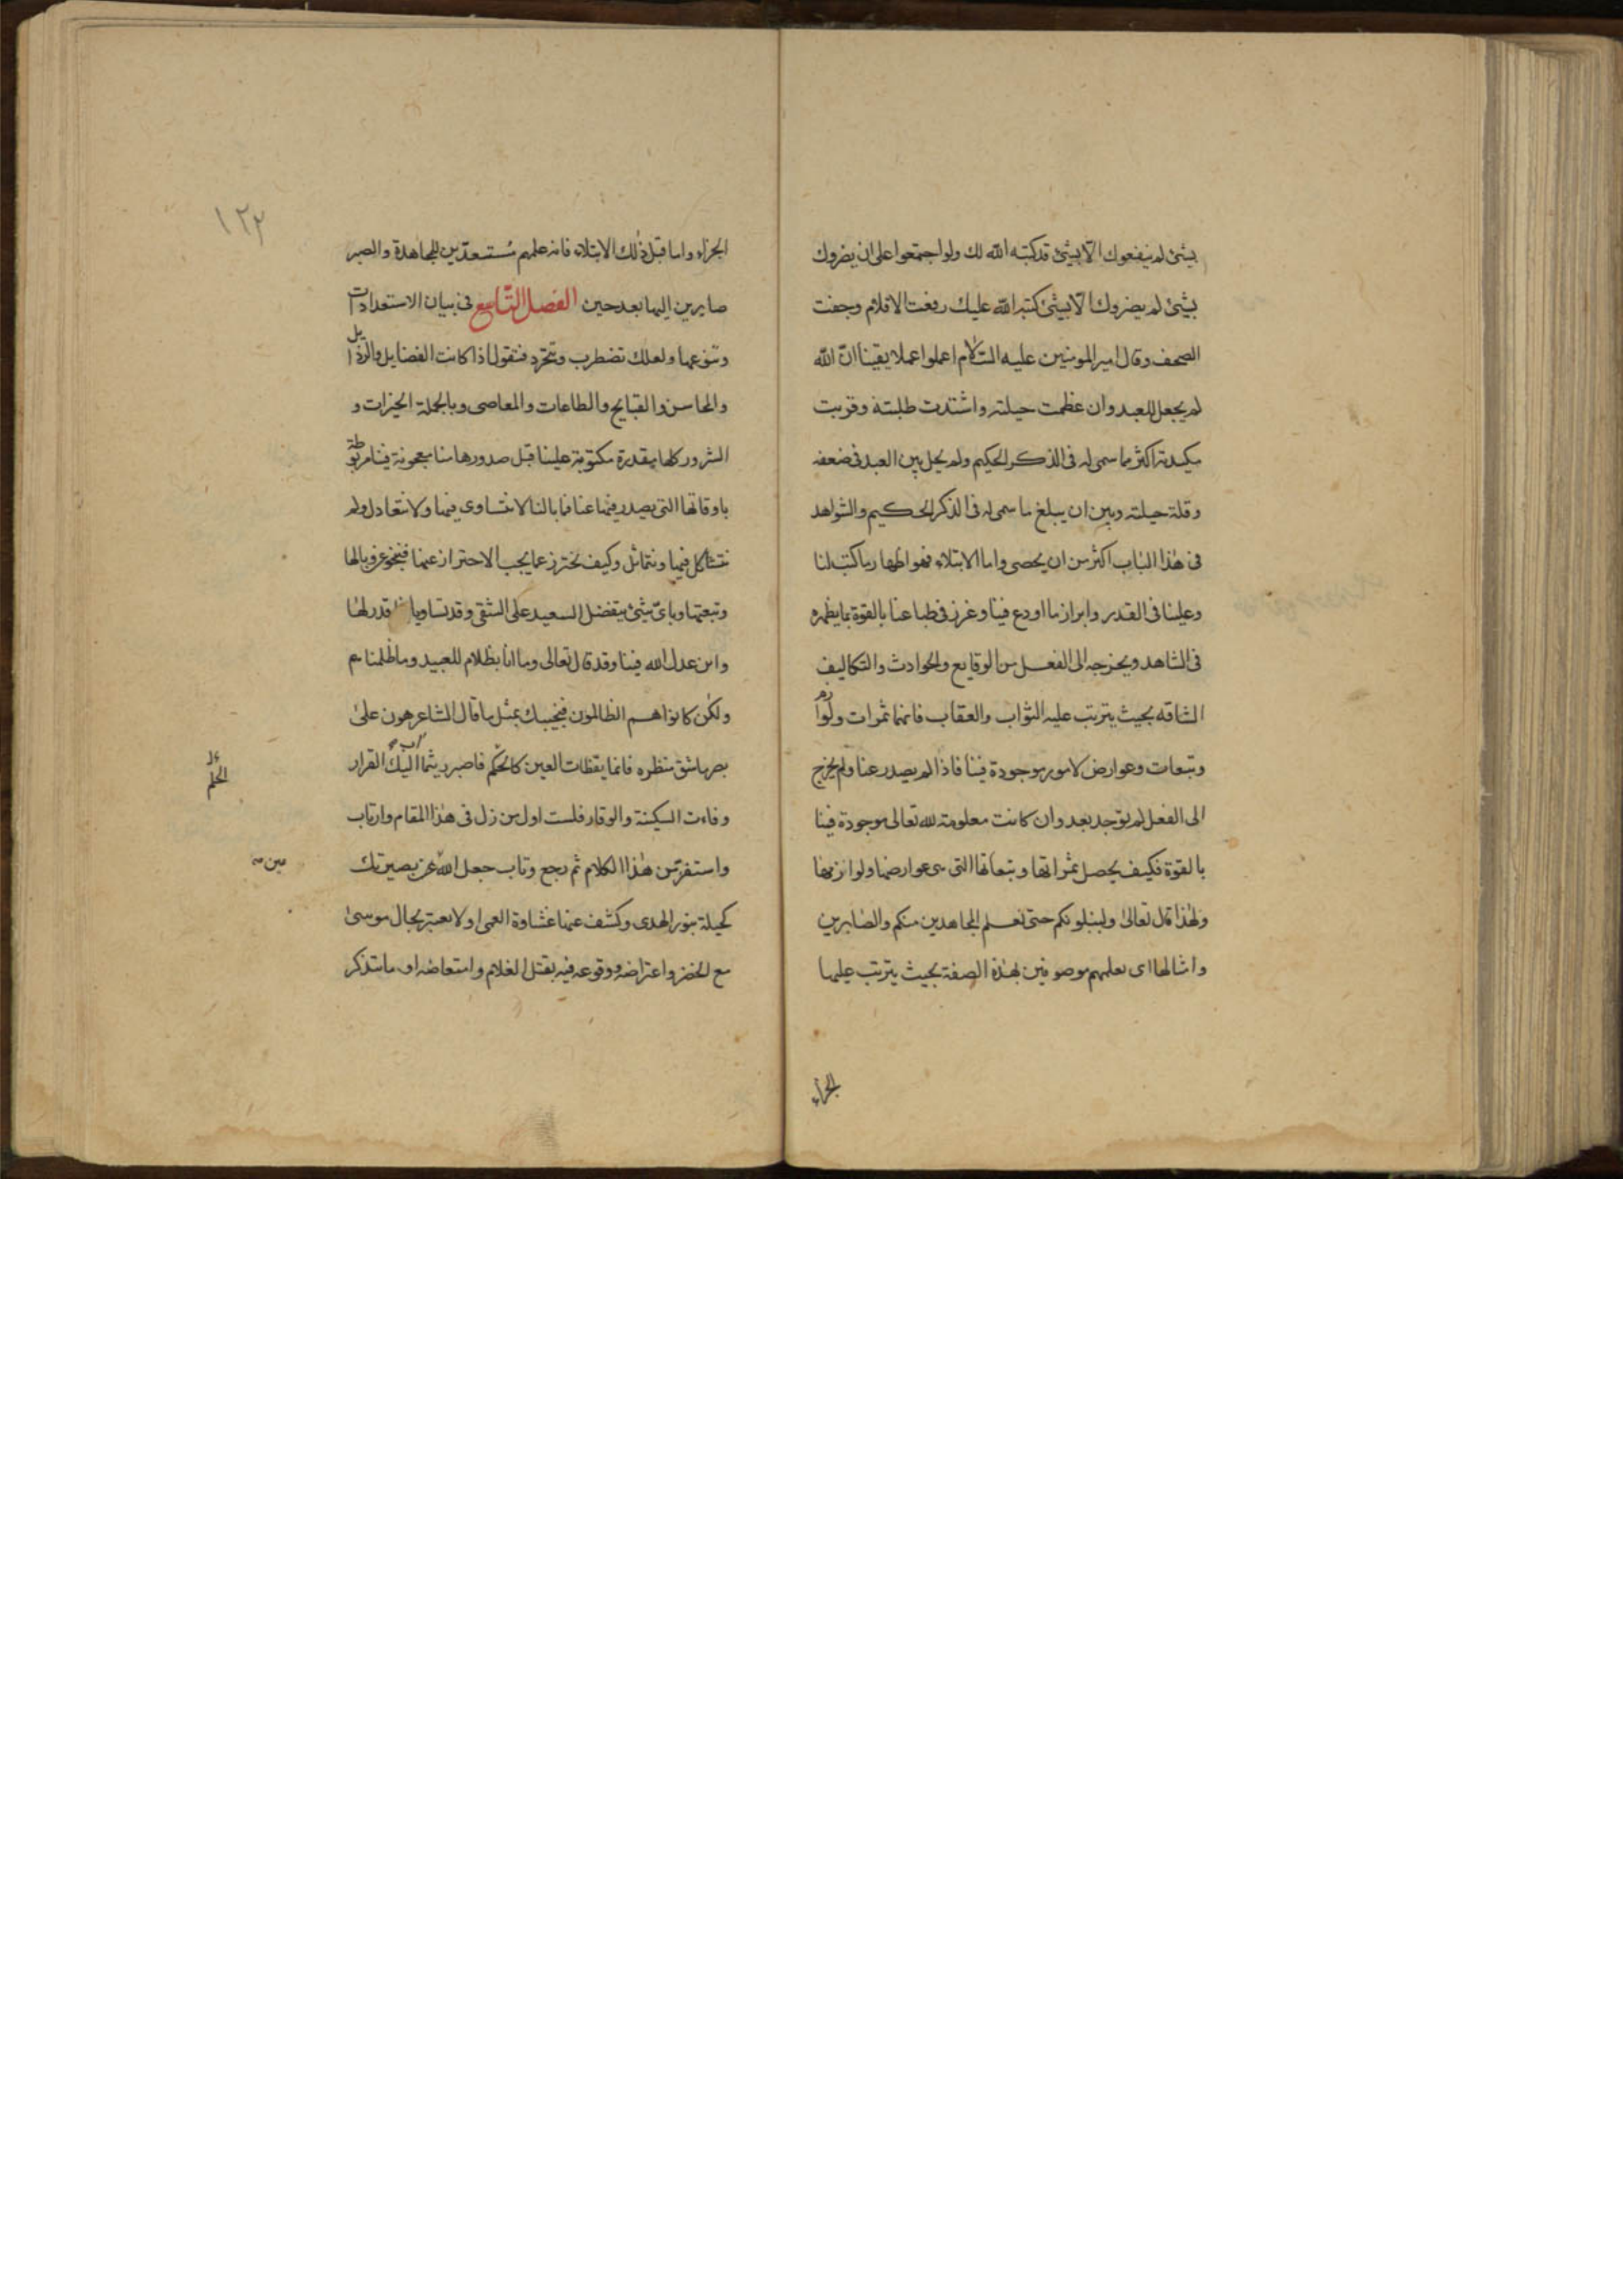 بشئ لم ينفعوك الّا بشئ قد كتبه الله لك ولو اجتمعوا على ان يضروك
بشئ لم يضروك الّا بشئ كتبه الله عليك رفعت الاقلام وجفت
الصحف وقال امير المومنين عليه السّلام اعلموا علما يقينا انّ الله
لم يجعل للعبد وان عظمت حيلته واشتدت طلبته وقويت
مكيدته اكثر مما سمى له فى الذكر الحكيم ولم يحل بين العبد فى ضعفه
وقلة حيلته وبين ان يبلغ ما سمى له فى الذكر الحكيم والشواهد
فى هذا الباب اكثر من ان يحصى واما الابتلاء فهو اظهار ما كتب لنا
وعلينا فى القدر وابراز ما اودع فينا وغرز فى طباعنا بالقوة بما يظهره
فى الشاهد ويخرجه الى الفعل من الوقايع والحوادث والتكاليف
الشاقه بحيث يترتب عليه الثواب والعقاب فانهما ثمرات ولوازم
وتبعات وعوارض لامور موجودة فينا فاذا لم يصدر عنا ولم يخرج
الى الفعل لم يوجد بعد وان كانت معلومة لله تعالى موجودة فينا
بالقوة فكيف يحصل ثمراتها وتبعاتها التى هى عوارضها ولوازمها
ولهذا قال تعالى ولنبلونكم حتى نعلم المجاهدين منكم والصابرين
وامثالها اى نعلمهم موصوفين بهذه الصفة بحيث يترتب عليها
الجزاء
١٢٢
الجزاء واما قبل ذلك الابتلاء فانه علمهم مستعدّين للمجاهدة والصبر
صايرين اليها بعد حين الفصل التّاسع فى بيان الاستعدادات
وتنوعها ولعلك تضطرب وتتحرد فتقول اذا كانت الفضايل والرذايل
والمحاسن والقبايح والطاعات والمعاصى وبالجملة الخيرات و
الشرور كلها مقدرة مكتوبة علينا قبل صدورها منا معجونة فينا مربوطة
باوقاتها التى يصدر فيها عنا فما بالنا لا نتساوى فيها ولا نتعادل ولم
نتشاكل فيها ونتماثل وكيف نحترز عما يجب الاحتراز عنها فننجو عن وبالها
وتبعتها وباىّ شئ يتفضل السعيد على الشقى وقد تساويا قدر لهما
واين عدل الله فينا وقد قال تعالى وما انا بظلام للعبيد وما ظلمناهم
ولكن كانوا هم الظالمون فنجيبك بمثل ما قال الشاعر هون على
بصر ما شق منظره فانما يقظات العين كالحلم فاصبر ريثما اليك القرار
الحلم
وفاءت السكينة والوقار فلست اول من زل فى هذا المقام وارتاب
واستفز من هذا الكلام ثم رجع وتاب جعل الله عين بصيرتك
عين
كحيلة بنور الهدى وكشف عنها غشاوة العمى اولا تعتبر بحال موسى
مع الخضر واعتراضه ووقوعه فيه بقتل الغلام وامتعاضه او ما تتذكر